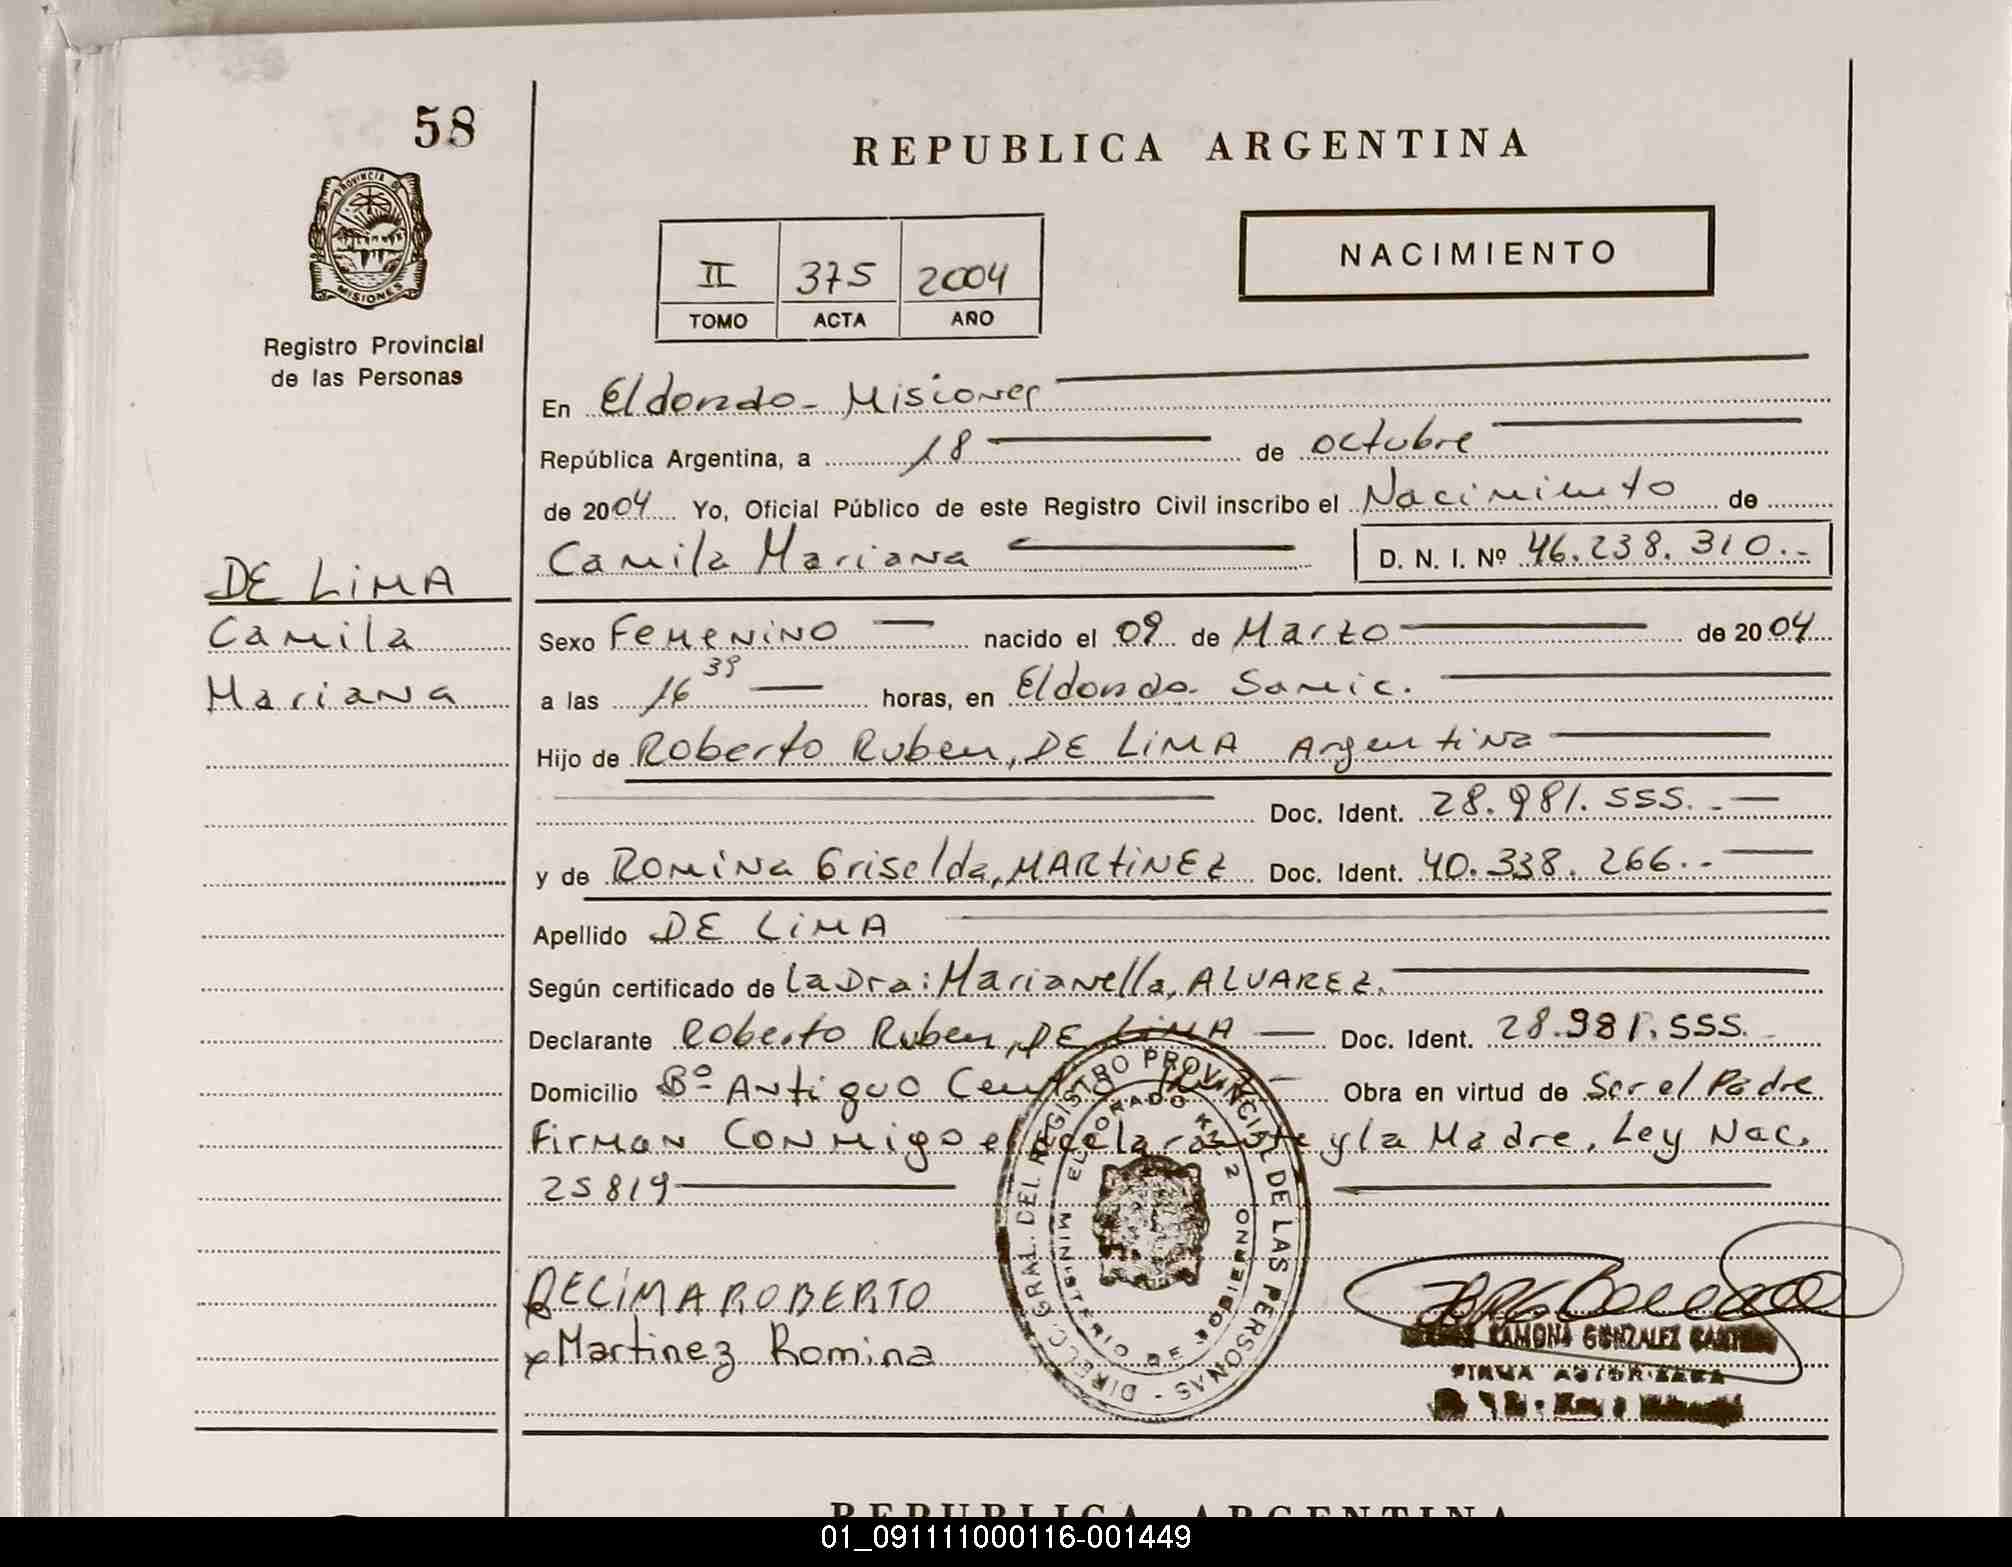 58
REPUBLICA ARGENTINA
PROVINCIA DE MISIONES
Registro Provincial
de las Personas
II 375 2004
TOMO ACTA AÑO
NACIMIENTO
En Eldorado - Misiones
República Argentina, a 18 de octubre
de 2004 Yo, Oficial Público de este Registro Civil inscribo el Nacimiento de
Camila Mariana D. N. I. Nº 46.238.310.-
DE LIMA
Camila
Mariana
Sexo Femenino nacido el 09 de Marzo de 2004
a las 16 39 horas, en Eldorado Samic.
Hijo de Roberto Ruben, DE LIMA Argentina
Doc. Ident. 28.981.555.-
y de Romina Griselda, MARTINEZ Doc. Ident. 40.338.266.-
Apellido DE LIMA
Según certificado de La Dra: Marianella, ALVAREZ.
Declarante Roberto Ruben, DE LIMA Doc. Ident. 28.981.555.
Domicilio Bº Antiguo Obra en virtud de Ser el Padre
Firman Conmigo el declarante y la Madre. Ley Nac.
25819
DIRECC. GRAL. DEL REGISTRO PROVINCIAL DE LAS PERSONAS -
ELDORADO KM. 2
MINISTERIO DE GOBIERNO
DELIMA ROBERTO
x Martinez Romina
RAMONA GONZALEZ
FIRMA AUTORIZADA
REPUBLICA ARGENTINA
01_091111000116-001449